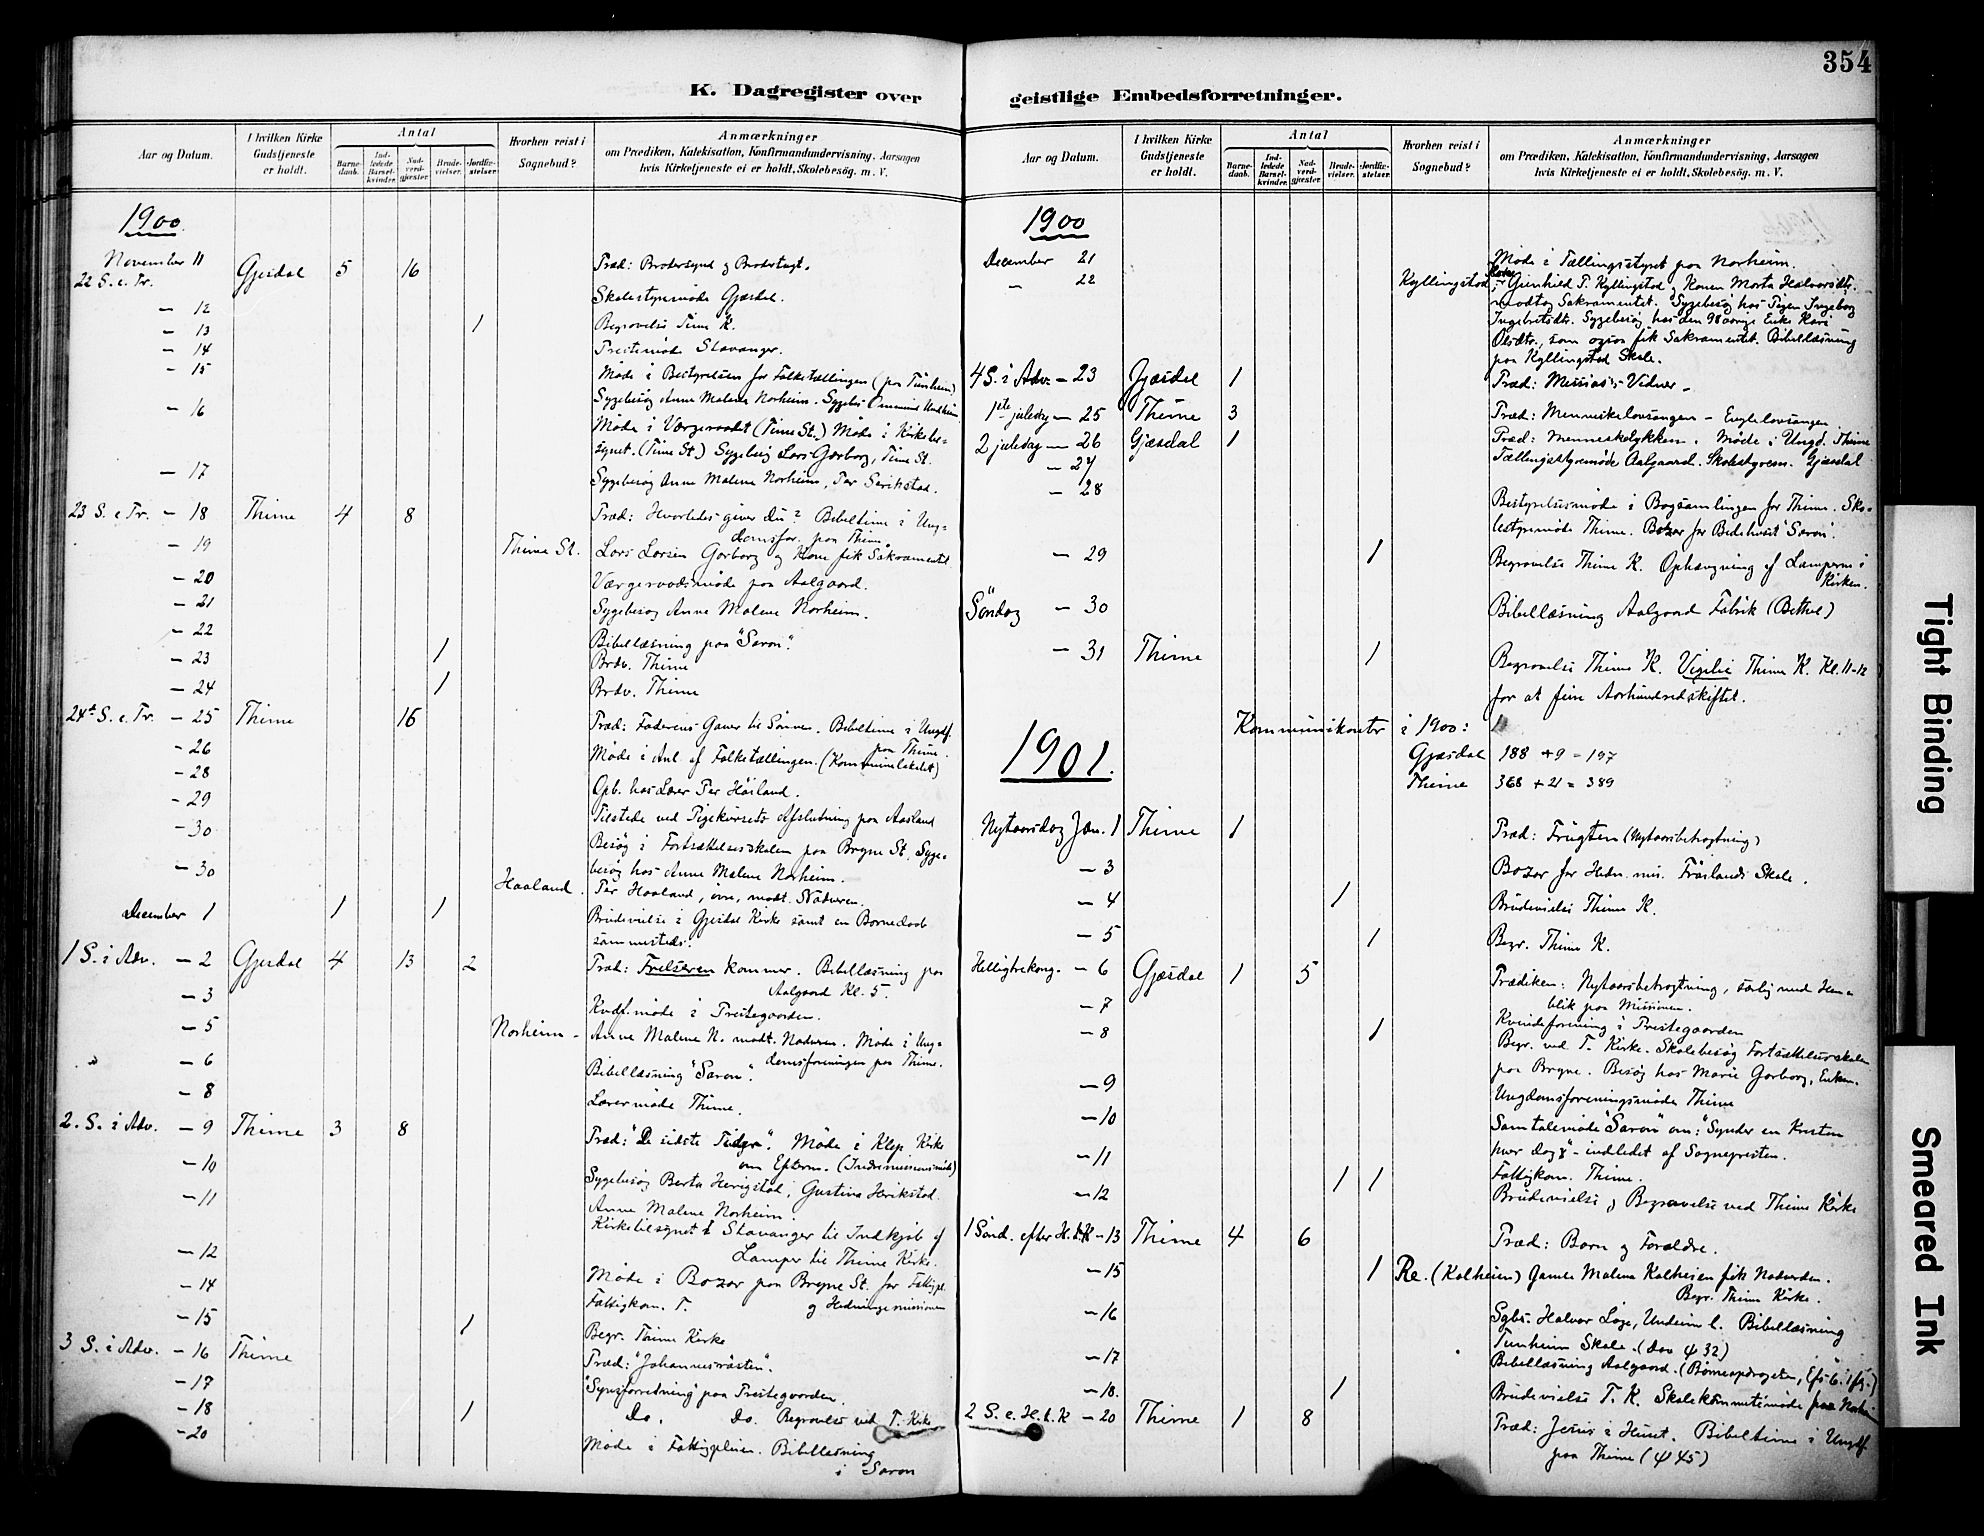 354
K. Dagregister over
Aar og Datum.
I hvilken Kirke Gudstjeneste er holdt.
Antal
Barne-daab.
Ind-ledede Barsel-kvinder.
Nad-verd-gjæster.
Brude-vielser.
Jordfæ-stelser.
Hvorhen reist i Sognebud?
Anmærkninger
om Prædiken, Katekisation, Konfirmandundervisning, Aarsagen
hvis Kirketjeneste ei er holdt, Skolebesøg. m. V.
1900
November 11
22 S. e. Tr. Gjesdal 5 16 Præd: Brodersynd og Brodertugt.
- 12 Skolestyremøde Gjæsdal.
- 13 1 Begravelse Time K.
- 14 Prestemøde Stavanger.
- 15 Møde i Bestyrelsen for Folketællingen (paa Tunheim)
Sygebesøg Anne Malene Norheim.
- 16 Møde i Værgeraadet (Time St.) Møde i Kirketil-
synet. (Time St.) Sygebesøg Lars Garborg, Time St.
- 17 Sygebesøg Anne Malene Norheim, Per
23 S. e. Tr. - 18 Thime 4 8 Præd: Hvorledes giver du? Bibeltime i Ung-
domsfor. paa Thime.
- 19 Thime St. Lars Larsen Garborg og Kone fik Sakramentet.
- 20 Værgeraadsmøde paa Aalgaard.
- 21 Sygebesøg Anne Malene Norheim.
- 22 Bibellæsning paa "Saron".
- 23 1 Brdv. Thime
- 24 1 Brdv. Thime
24de S. e. Tr. - 25 Thime 16 Præd: Faderens Gaver til Sønnen. Bibeltime i Ungdf.
paa Thime.
- 26 Møde i Anl. af Folketællingen. (Kommunelokalet)
- 28 Opb. hos Lærer Per Høiland.
- 29 Tilstede ved Pigekursets Afslutning paa Aasland
- 30 Besøg i Fortsættelsesskolen paa Bryne St. Syge-
besøg hos Anne Malene Norheim.
- 30 Haaland. Per Haaland, øvre, modt. Nadveren.
December 1 1 1 Brudevielse i Gjesdal Kirke samt en Barnedaab
sammesteds.
1 S. i Adv. - 2 Gjesdal 4 13 2 Præd: Frelseren kommer. Bibellæsning paa
Aalgaard Kl. 5.
- 3 Kvdf. møde i Prestegaarden.
- 5 Norheim - Anne Malene N. modt. Nadveren. Møde i Ung-
domsforeningen paa Thime.
" - 6 Bibellæsning "Saron".
- 8 Lærermøde Thime.
2. S. i Adv. - 9 Thime 3 8 Præd: "De sidste Tider". Møde i Klep Kirke
om Efterm. (Indremissionsmøde)
- 10 Sygebesøg Berta Herigstad, Gustina Herikstad.
- 11 Anne Malene Norheim.
Kirketilsynet t. Stavanger til Indkjøb af
Lamper til Thime Kirke.
- 12
- 14 Møde i Bazar paa Bryne St. for Fattigpl.
og Hedningemissionen
Fattigkom. T.
- 15 1 Begr. Thime Kirke
3 S. i Adv. - 16 Thime Præd: "Johannesrøsten".
- 17 "Synsforretning" paa Prestegaarden.
- 18 1 Do. Do. Begravelse ved T. Kirke
- 20 Møde i Fattigpleien. Bibellæsning
i Saron
geistlige Embedsforretninger.
Aar og Datum.
I hvilken Kirke Gudstjeneste er holdt.
Antal
Barne-daab.
Ind-ledede Barsel-kvinder.
Nad-verd-gjæster.
Brude-vielser.
Jordfæ-stelser.
Hvorhen reist i Sognebud?
Anmærkninger
om Prædiken, Katekisation, Konfirmandundervisning, Aarsagen
hvis Kirketjeneste ei er holdt, Skolebesøg. m. V.
1900
December 21 Møde i Tællingsstyret paa Norheim.
- 22 Kyllingstad; Gunhild T. Kyllingstad og Konen Marta Halvorsdtr.
modtog Sakramentet. Sygebesøg hos Pigen Ingeborg
Ingebretsdtr. Sygebesøg hos den 98 aarige Enke Kari
Olsdtr., som ogsaa fik Sakramentet. Bibellæsning
paa Kyllingstad Skole.
4 S. i Adv. - 23 Gjæsdal 1 Præd: Messias's Vidner -
1ste juledag - 25 Thime 3 Præd: Menneskelovsangen - Englelovsangen
2 juledag - 26 Gjæsdal 1 Præd: Menneskelykken. Møde i Ungd. Thime
- 27 Tællingsstyremøde Aalgaard. Skolestyrem. Gjæsdal
- 28 Bestyrelsesmøde i Bogsamlingen for Thime. Sko-
lestyremøde Thime. Bazar for Bedehuset "Saron".
- 29 1 Begravelse Thime K. Ophængning af Lamperne i
Kirken.
Søndag - 30 Bibellæsning Aalgaard Fabrik (Bethel)
- 31 Thime 1 Begravelse Thime K. Vigilie Thime K. Kl. 11-12
for at feire Aarhundredskiftet.
Kommunikanter i 1900:
Gjæsdal 188 + 9 = 197
Thime 368 + 21 = 389
1901.
Nytaarsdag Jan. 1 Thime 1 Præd: Frugten (Nytaarsbetragtning)
- 3 Bazar for Hedn. mis. Frøilands Skole.
- 4 1 Brudevielse Thime K.
- 5 1 Begr. Thime K.
Helligtrekong. - 6 Gjæsdal 1 5 Prædiken: Nytaarsbetragtning, særlig med Hen-
blik paa Missionen.
- 7 Kvindeforening i Prestegaarden
- 8 1 Begr. ved T. Kirke. Skolebesøg Fortsættelsesskolen
paa Bryne. Besøg hos Marie Garborg, Enken.
- 9 Ungdomsforeningsmøde Thime
- 10 Samtalemøde "Saron" om: "Synder en Kristen
hver dag?" - indledet af Sognepresten.
- 11 Fattigkom. Thime.
- 12 1 1 Brudevielse og Begravelse ved Thime Kirke
1 Sønd. efter H. t. K - 13 Thime 4 6 Præd: Barn og Forældre.
- 15 1 Re. (Kalheien) Gamle Malena Kalheien fik Nadverden.
Begr. Thime Kirke.
- 16 Sgbs. Halvor Lige, Undeim l. Bibellæsning
Tunheim Skole. (Dav ψ 32)
- 17 Bibellæsning Aalgaard. (Børneopdragelsen, Efs 6. 1 ff.)
- 18. 1 Brudevielse T. K. Skolekommitemøde paa
2 S. e. H. t. K - 20 Thime 1 8 Præd: Jesus i Huset. Bibeltime i Ungdf.
paa Thime (ψ 45)
Tight Binding
Smeared Ink